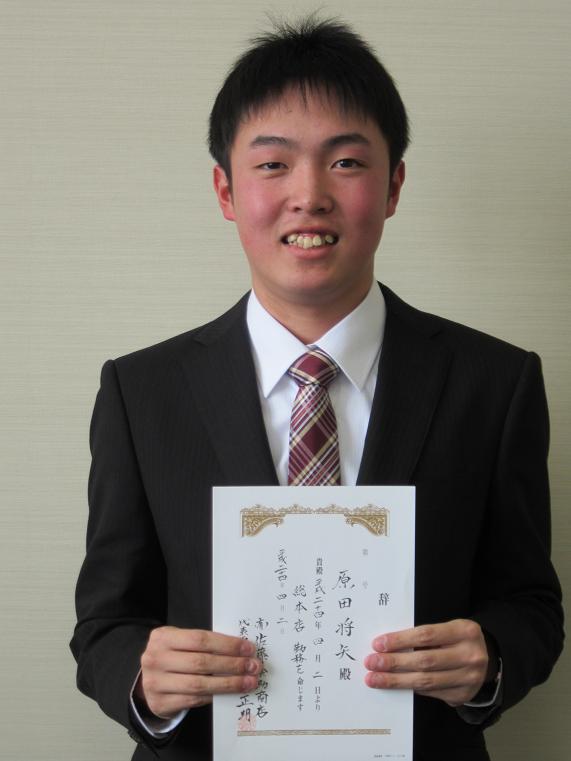 辞
原田将矢殿
第 号
貴殿 平成二十四年 四月 二日より
総本店 勤務を命じます
平成二十四年 四月 二日
正明